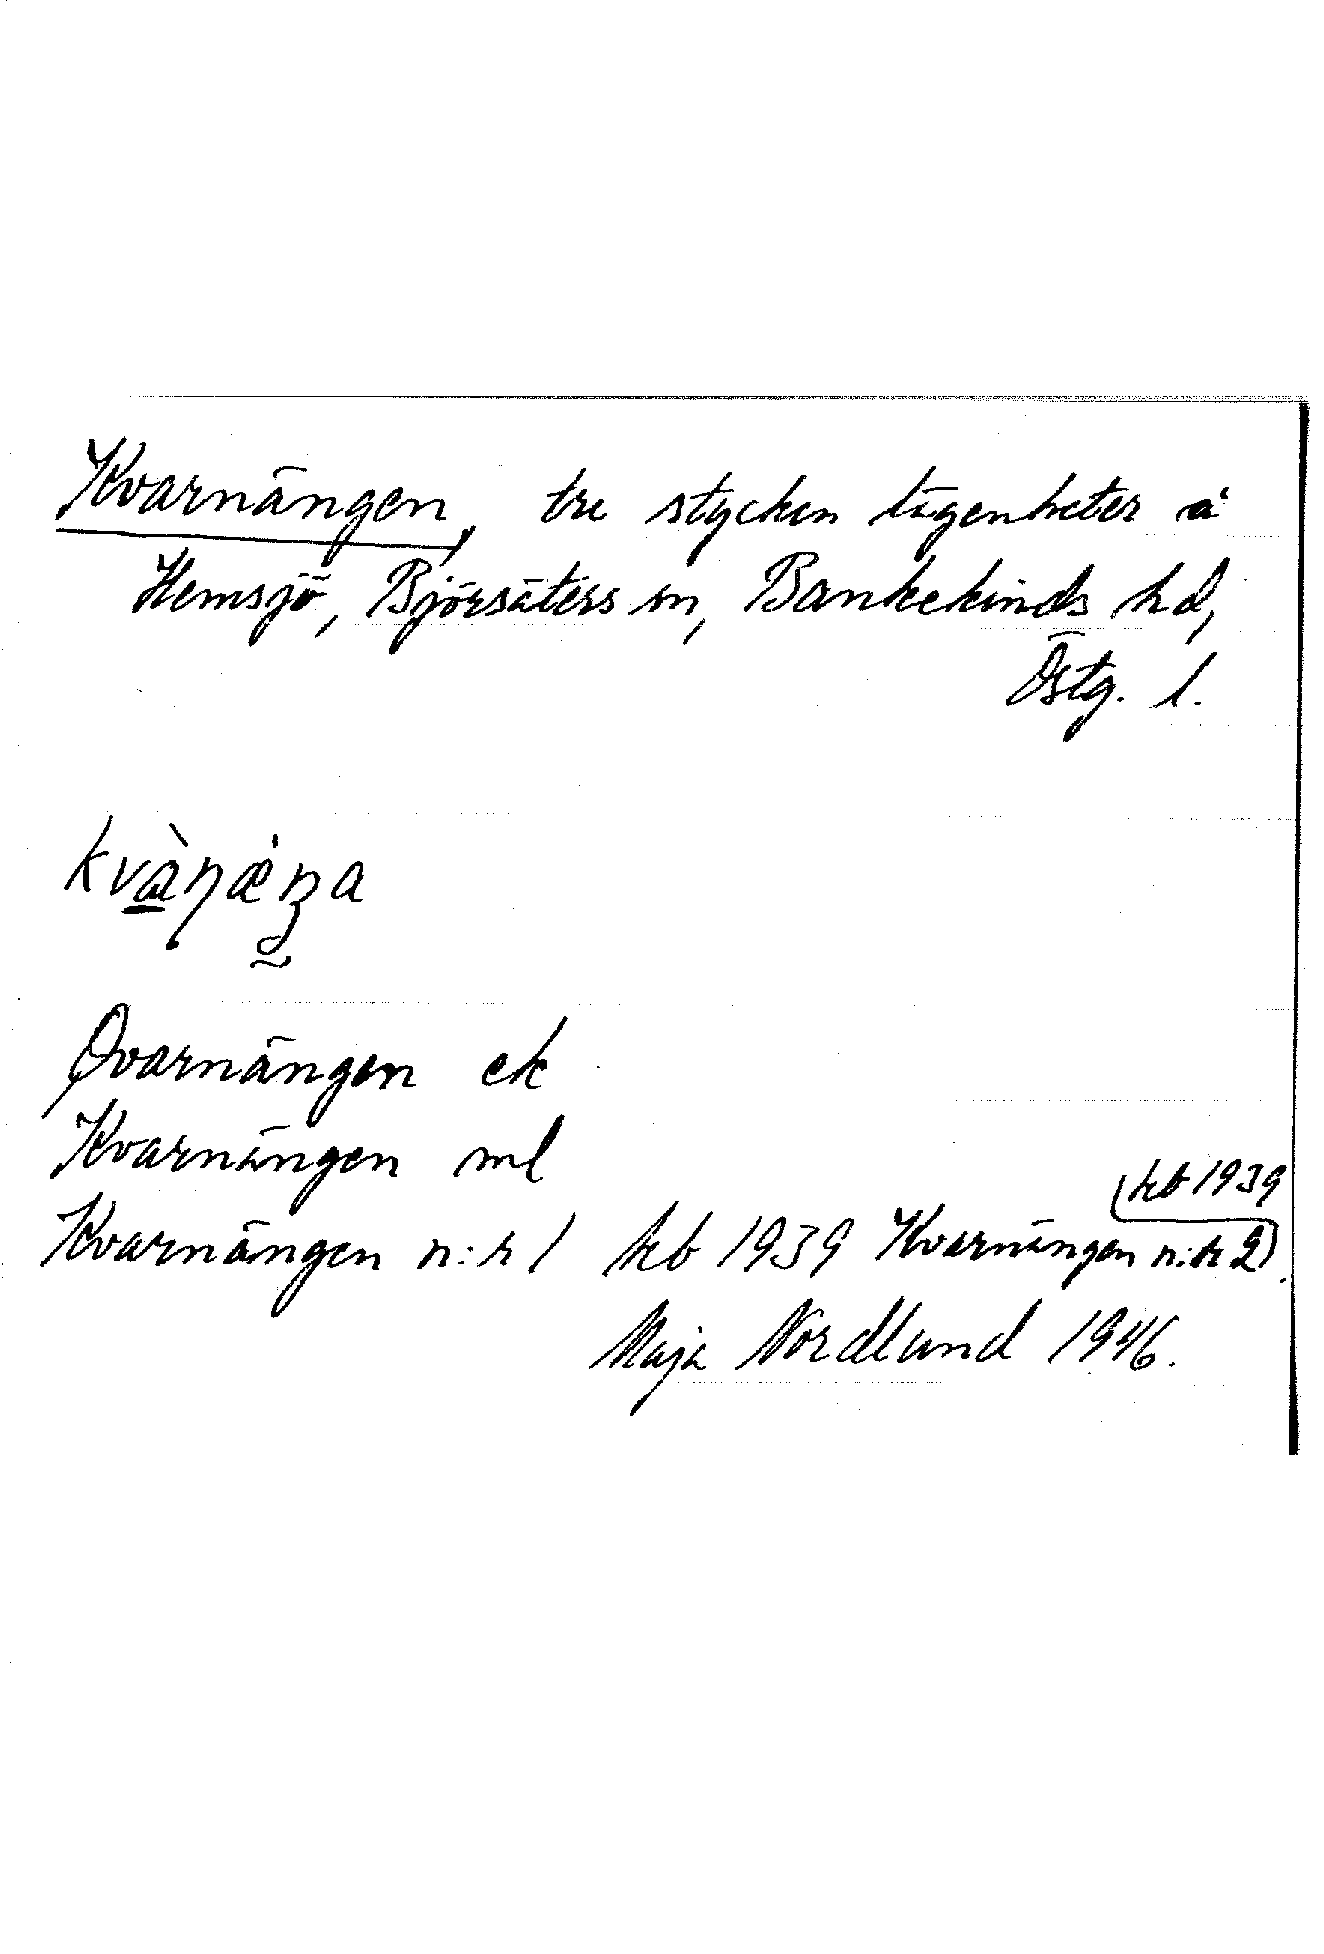 Kvarnängen, tre stycken lägenheter å
Hemsjö, Björsäters sn, Bankekinds hd,
Östg. l.
Qvarnängen ek
Kvarnängen ml
kb 1939
Kvarnängen n:r 1 kb 1939 Kvarnängen n:r 2).
Maja Nordlund 1946.